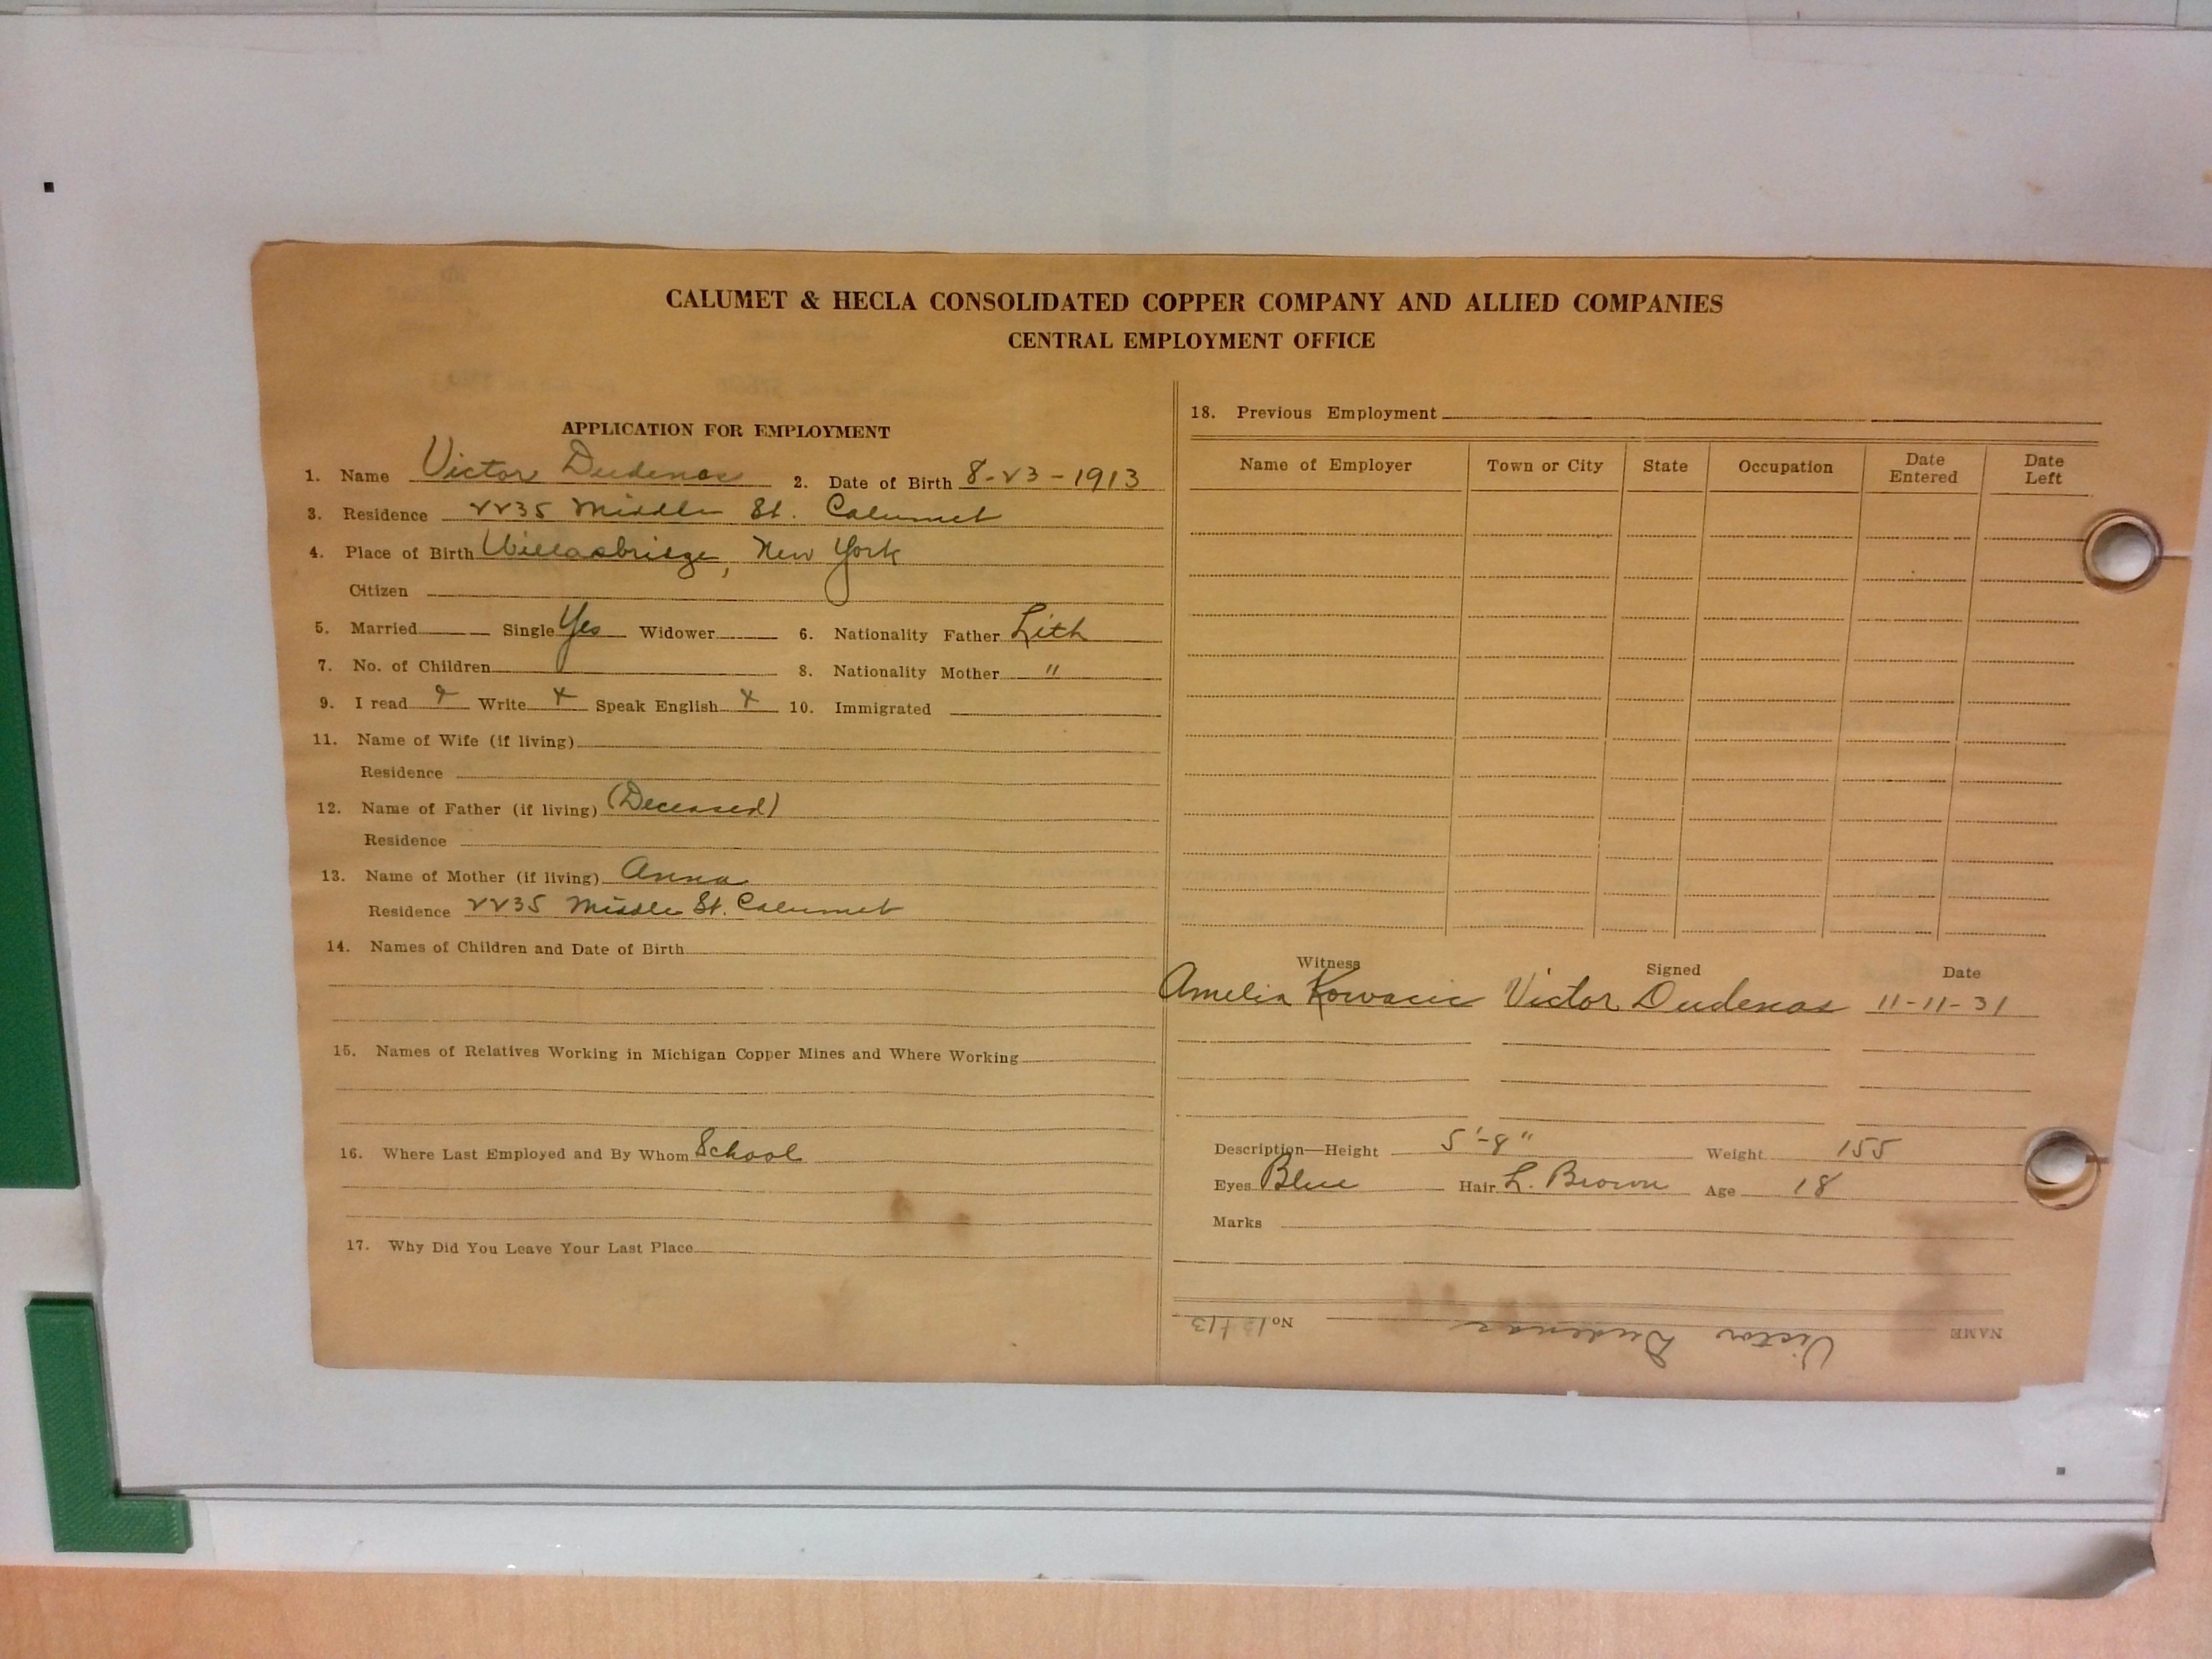 CALUMET & HECLA CONSOLIDATED COPPER COMPANY AND ALLIED COMPANIES
CENTRAL EMPLOYMENT OFFICE
APPLICATION FOR EMPLOYMENT
1. Name Victor Dudenas 2. Date of Birth 8-23-1913
3. Residence 2235 Middle St. Calumet
4. Place of Birth Willasbridge, New York
Citizen
5. Married Single Yes Widower 6. Nationality Father Lith
7. No. of Children 8. Nationality Mother "
9. I read x Write x Speak English x 10. Immigrated
11. Name of Wife (if living)
Residence
12. Name of Father (if living) (Deceased)
Residence
13. Name of Mother (if living) Anna
Residence 2235 Middle St. Calumet
14. Names of Children and Date of Birth
15. Names of Relatives Working in Michigan Copper Mines and Where Working
16. Where Last Employed and By Whom School
17. Why Did You Leave Your Last Place
18. Previous Employment
Name of Employer Town or City State Occupation Date Entered Date Left
Witness Signed Date
Amelia Kovacic Victor Dudenas 11-11-31
Description—Height 5'-8" Weight 155
Eyes Blue Hair L. Brown Age 18
Marks
NAME Victor Dudenas No.